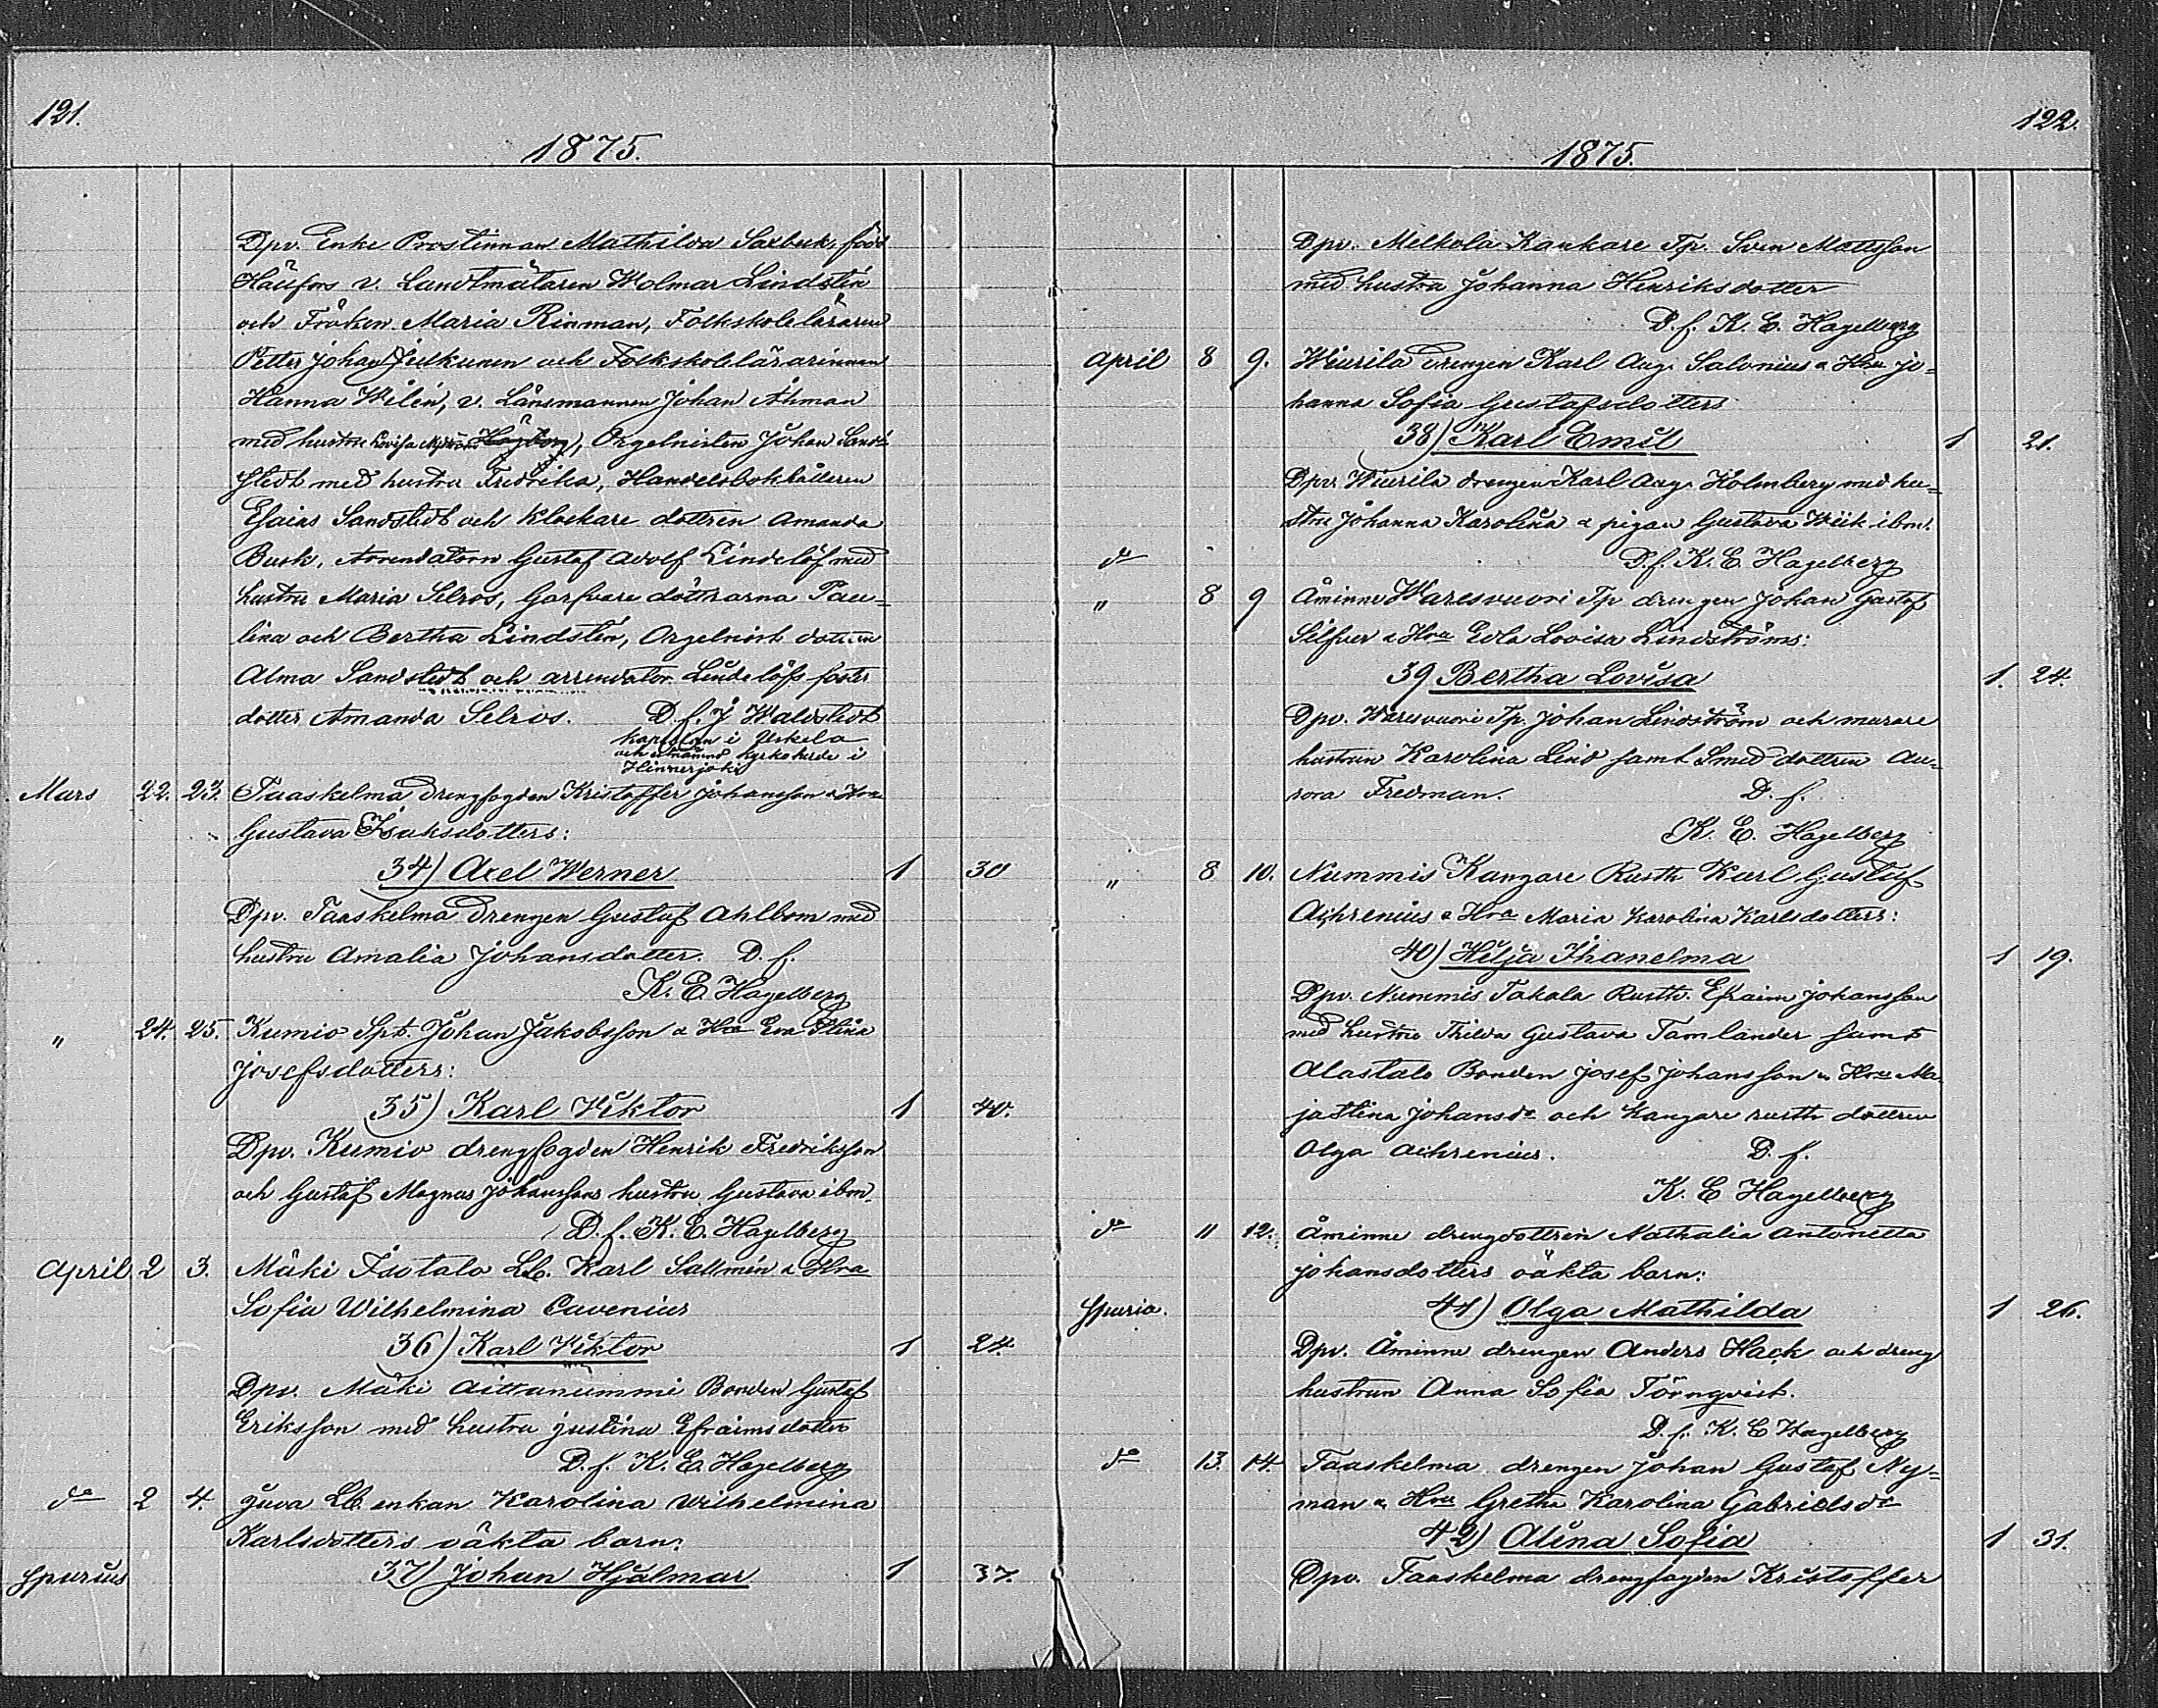 121.
1875.
Dpv. Enke Prostinnan Mathilda Saxbeck, född
Häufors v. Landtmätaren Wolmar Lindstén
och Fröken Maria Rinman, Folkskoleläraren
Petter Johan Julkunen och Folkskolelärarinnan
Hanna Wilén, v. Länsmannen Johan Åhman
med hustru Lovisa Högborg), Orgelnisten Johan Sand-
stedt med hustru Fredrika, Handelsbokhållaren
Esaias Sandstedt och Klockare dottren Amanda
Busk, Arrendatorn Gustaf Adolf Lindelöf med
hustru Maria Selros, Garfvare döttrarna Pau-
lina och Bertha Lindstén, Orgelnist dottren
Alma Sandstedt och arrendator Lindelöfs foster
dotter Amanda Selros. D. f. J Waldstedt
kapellan i Uskela
och utnämnd kyrkoherde i
Hinnerjoki
Mars 22. 23. Taaskelma Drengfogden Kristoffer Johansson & Hra
Gustava Isaksdotters:
34) Axel Werner 1 30
Dpv. Taaskelma Drengen Gustaf Ahlbom med
hustru Amalia Johansdotter. D. f.
K. E. Hagelberg
" 24. 25. Kumio Spt. Johan Jakobsson & Hra Eva Stina
Josefsdotters:
35) Karl Viktor 1 40.
Dpv. Kumio drengfogden Henrik Fredriksson
och Gustaf Magnus Johanssons hustru Gustava ibm.
D. f. K. E. Hagelberg
April 2 3. Mäki Isotalo Lb. Karl Sallmén & Hra
Sofia Wilhelmina Cavenius
36) Karl Viktor 1 24.
Dpv. Mäki Aittanummi Bonden Gustaf
Eriksson med hustru Justina Efraimsdotter
D. f. K. E. Hagelberg
do 2 4. Juva Lb. enkan Karolina Wilhelmina
Karlsdotters oäkta barn:
spurius 37) Johan Hjalmar 1 37.
122.
1875.
Dpv. Melkola Kankare Tp. Sven Mattsson
med hustru Johanna Henriksdotter
D. f. K. E. Hagelberg
April 8 9. Wiurila Drengen Karl Aug. Salonius & Hra Jo-
hanna Sofia Gustafsdotters
38) Karl Emil 1 21.
Dpv. Wiurila drengen Karl Aug. Holmberg med hu-
stru Johanna Karolina & pigan Gustava Wiik ibm.
do D. f. K. E. Hagelberg
" 8 9 Åminne Waresvuori Tp drengen Johan Gustaf
Silfver & Hra Edla Lovisa Lindströms:
39 Bertha Lovisa 1. 24.
Dpv. Waresvuori Tp. Johan Lindström och murare
hustrun Karolina Lind samt Smed dottren Au-
rora Fredman. D. f.
K. E. Hagelberg
" 8 10. Nummis Kangare Rusth Karl Gustaf
Achrenius & Hra Maria Karolina Karlsdotters:
40) Hilja Ihanelma 1 19.
Dpv. Nummis Takala Rusth. Efraim Johansson
med hustru Thilda Gustava Tamlander samt
Alastalo Bonden Josef Johansson & Hra Ma-
ja Stina Johansdr och Kangare rusth dottren
Olga Achrenius. D. f.
K. E Hagelberg
do 11 12. Åminne drengdottren Nathalia Antonetta
Johansdotters oäkta barn:
Spuria. 41) Olga Mathilda 1 26.
Dpv. Åminne drengen Anders Hack och dreng
hustrun Anna Sofia Törnqvist.
D. f. K. E Hagelberg
do 13. 14. Taaskelma drengen Johan Gustaf Ny-
man & Hra Gretha Karolina Gabrielsdr
42) Alina Sofia 1 31.
Dpv. Taaskelma drengfogden Kristoffer